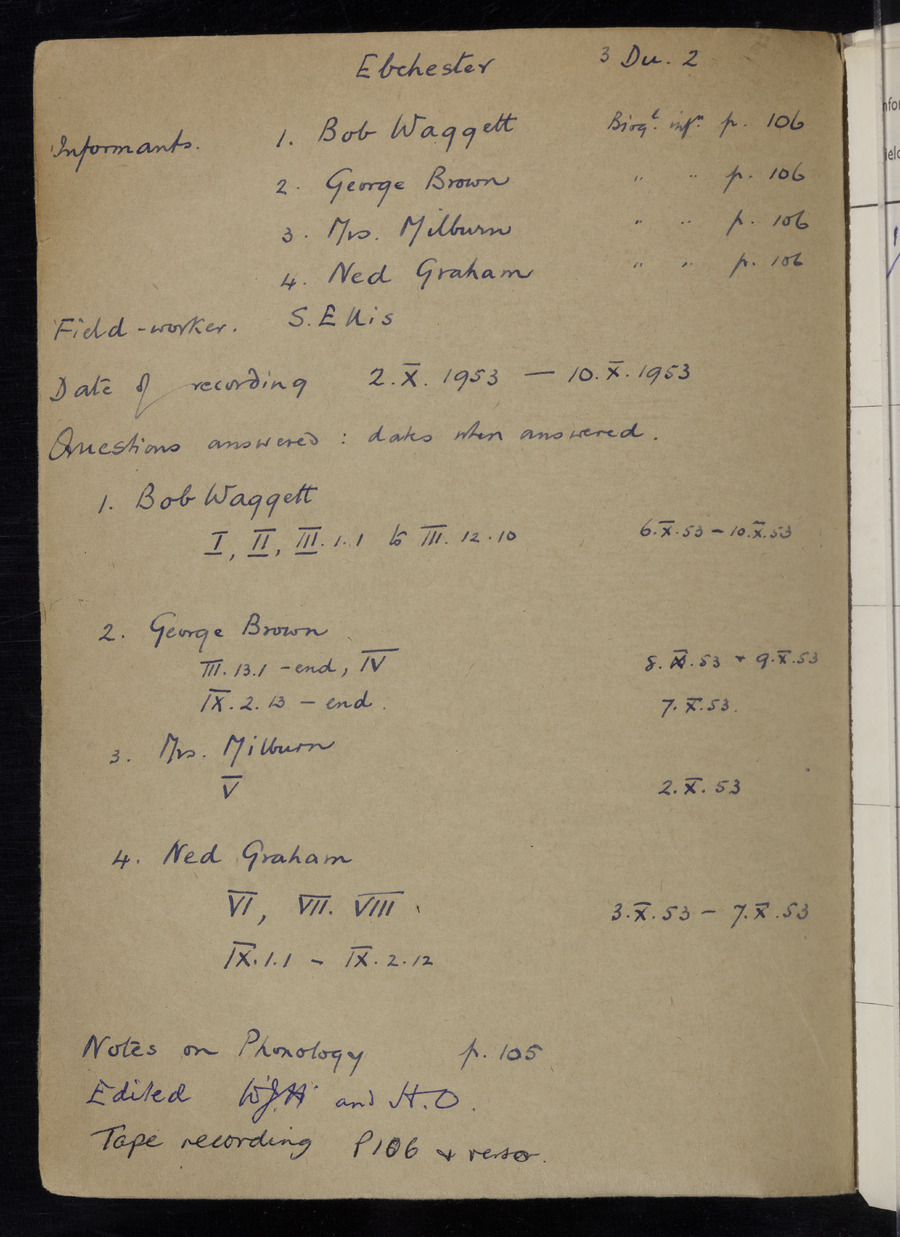 Ebchester 3 Du. 2
Informants. 1. Bob Waggett Biogl. infn. p. 106
2. George Brown " " p. 106
3. Mrs. Milburn " " p. 106
4. Ned Graham " " p. 106
Field-worker. S. Ellis
Date of recording 2.X.1953 — 10.X.1953
Questions answered : dates when answered.
1. Bob Waggett
I, II, III.1.1 to III.12.10 6.X.53 – 10.X.53
2. George Brown
III.13.1 – end, IV 8.X.53 + 9.X.53
IX.2.13 – end. 7.X.53.
3. Mrs. Milburn
V 2.X.53
4. Ned Graham
VI, VII. VIII 3.X.53 – 7.X.53
IX.1.1 – IX.2.12
Notes on Phonology p. 105
Edited WJH and H.O.
Tape recording P106 + verso.